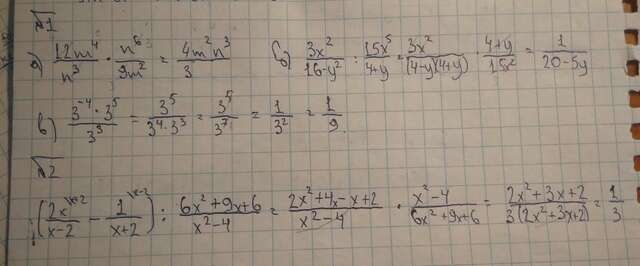 №1
а) 12m⁴/n³ · n⁶/9m² = 4m²n³/3 б) 3x²/(16-y²) : 15x⁵/(4+y) = 3x²/((4-y)(4+y)) · (4+y)/15x² = 1/(20-5y)
в) (3⁻⁴ · 3⁵)/3³ = 3⁵/(3⁴ · 3³) = 3⁵/3⁷ = 1/3² = 1/9
№2
(2x\x+2/(x-2) - 1\x-2/(x+2)) : (6x²+9x+6)/(x²-4) = (2x²+4x-x+2)/(x²-4) · (x²-4)/(6x²+9x+6) = (2x²+3x+2)/(3(2x²+3x+2)) = 1/3